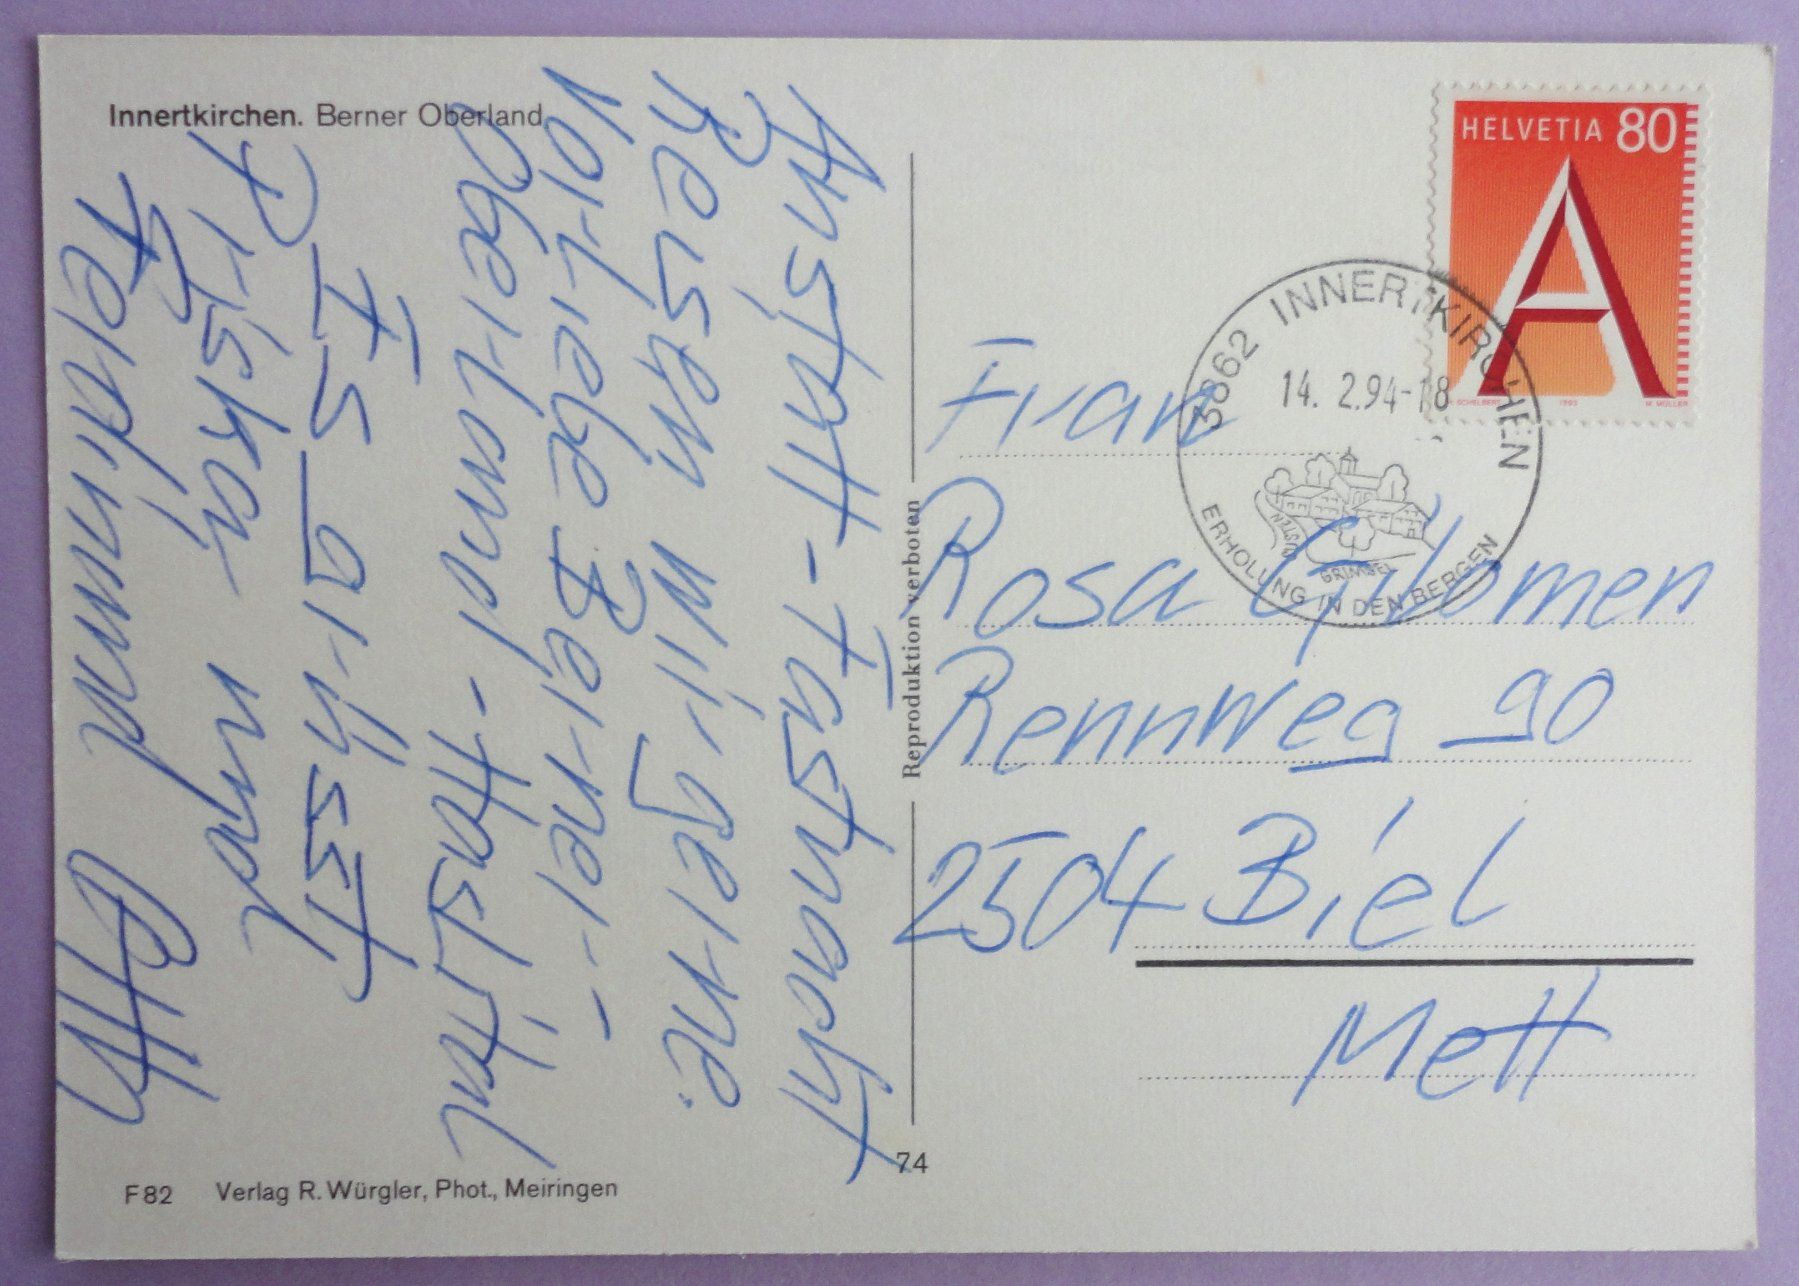 Innertkirchen. Berner Oberland
Anstatt - Fastnacht
Reisen wir gerne.
Vorliebe Berner-
Oberland - Haslital
Es grüsst
Priska und
Ferdinand
F 82 Verlag R. Würgler, Phot., Meiringen
Reproduktion verboten
74
HELVETIA 80
A
1993
M. MÜLLER
3862 INNERTKIRCHEN
14. 2.94-18
SUSTEN
GRIMSEL
ERHOLUNG IN DEN BERGEN
Frau
Rosa Gilomen
Rennweg 90
2504 Biel
Mett